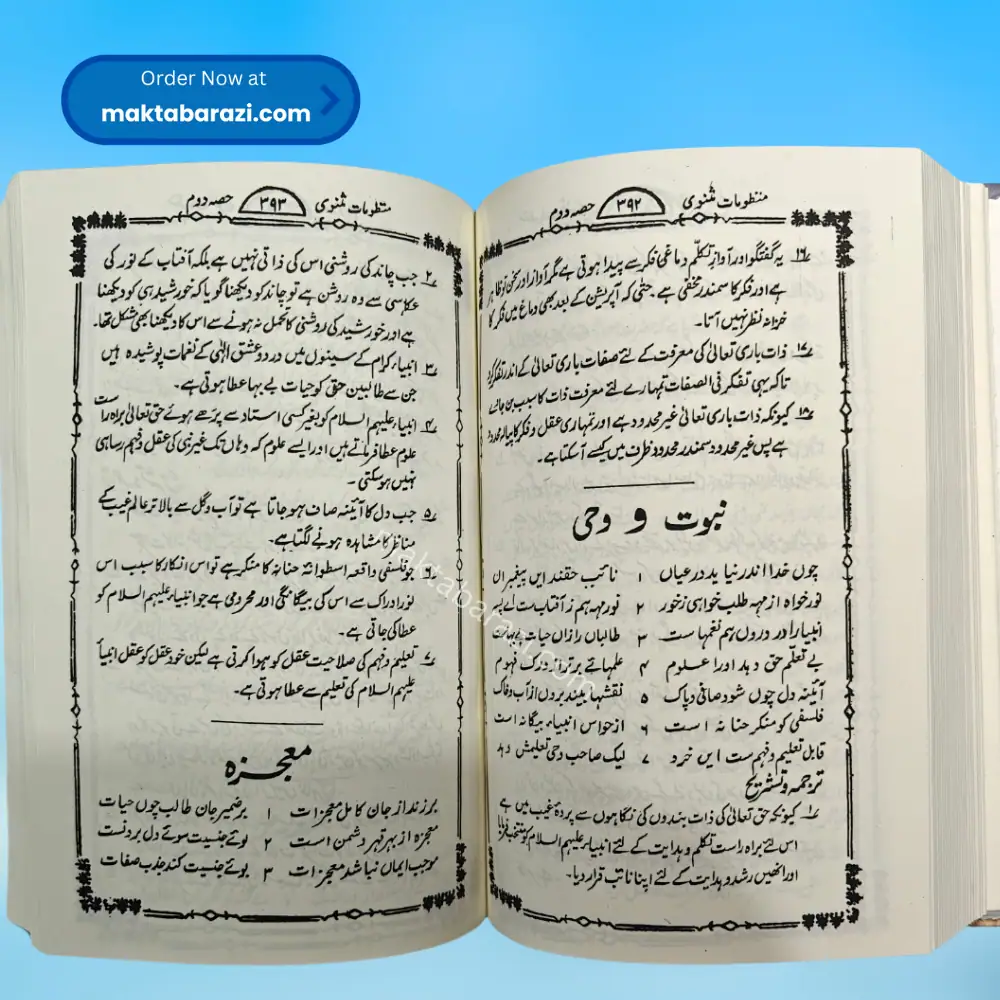 Order Now at
maktabarazi.com
منظومات مثنوی ۳۹۲ حصہ دوم
۱۶ یہ گفتگو اور آوازِ تکلّم دماغی فکر سے پیدا ہوتی ہے مگر آواز اور سخن تو ظاہر
ہے اور فکر کا سمندر مخفی ہے حتٰی کہ آپریشن کے بعد بھی دماغ میں فکر کا
خزانہ نظر نہیں آتا۔
۱۷ ذات باری تعالیٰ کی معرفت کے لئے صفات باری تعالیٰ کے اندر تفکر کرو
تاکہ یہی تفکر فی الصفات تمہارے لئے معرفت ذات کا سبب بن جائے
۱۸ کیونکہ ذات باری تعالیٰ غیر محدود ہے اور تمہاری عقل و فکر کا پیالہ محدود
ہے پس غیر محدود سمندر محدود ظرف میں کیسے آسکتا ہے۔
نبوت و وحی
چوں خدا اندر نیاید در عیاں ۱ نائب حقند ایں پیغمبراں
نور خواہ از مہہ طلب خواہی زخور ۲ نور مہہ ہم ز آفتاب ست اے پسر
انبیا را در دروں ہم نغمہا ست ۳ طالباں را زاں حیات بے بہاست
بے تعلّم حق دہد او را علوم ۴ علمہائے برتر از درک فہوم
آئینہ دل چوں شود صافی و پاک ۵ نقشہا بیند بروں از آب و خاک
فلسفی کو منکر حنانہ است ۶ از حواس انبیاء بیگانہ است
قابل تعلیم و فہم ست ایں خرد ۷ لیک صاحب وحی تعلیمش دہد
ترجمہ و تشریح
۱ کیونکہ حق تعالیٰ کی ذات بندوں کی نگاہوں سے پردۂ غیب میں ہے
اس لئے براہ راست تکلم و ہدایت کے لئے انبیاء علیہم السلام کو منتخب فرمایا
اور انھیں رشد و ہدایت کے لئے اپنا نائب قرار دیا۔
منظومات مثنوی ۳۹۳ حصہ دوم
۲ جب چاند کی روشنی اس کی ذاتی نہیں ہے بلکہ آفتاب کے نور کی
عکاسی سے وہ روشن ہے تو چاند کو دیکھنا گویا کہ خورشید ہی کو دیکھنا
ہے اور خورشید کی روشنی کا تحمل نہ ہونے سے اس کا دیکھنا بھی مشکل تھا۔
۳ انبیاء کرام کے سینوں میں درد و عشق الٰہی کے نغمات پوشیدہ ہیں
جن سے طالبین حق کو حیات بے بہا عطا ہوتی ہے۔
۴ انبیاء علیہم السلام کو بغیر کسی استاد سے پڑھے ہوئے حق تعالیٰ براہ راست
علوم عطا فرماتے ہیں اور ایسے علوم کہ وہاں تک غیر نبی کی عقل و فہم رسا ہی
نہیں ہوسکتی۔
۵ جب دل کا آئینہ صاف ہو جاتا ہے تو آب و گل سے بالاتر عالم غیب کے
مناظر کا مشاہدہ ہونے لگتا ہے۔
۶ جو فلسفی واقعہ اسطوانۂ حنانہ کا منکر ہے تو اس انکار کا سبب اس
نور ادراک سے اس کی بیگانگی اور محرومی ہے جو انبیاء علیہم السلام کو
عطا کی جاتی ہے۔
۷ تعلیم و فہم کی صلاحیت عقل کو ہوا کرتی ہے لیکن خود عقل کو عقل انبیاء
علیہم السلام کی تعلیم سے عطا ہوتی ہے۔
معجزہ
برزند از جان کامل معجزات ۱ بر ضمیر جان طالب چوں حیات
معجزہ از بہر قہر دشمن است ۲ بوئے جنسیت سوئے دل بردنست
موجب ایماں نباشد معجزات ۳ بوئے جنسیت کند جذب صفات
maktabarazi.com